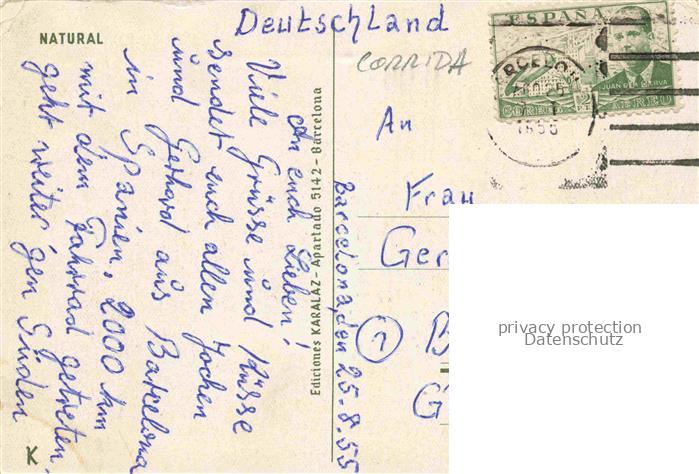 Deutschland
NATURAL
CORRIDA
ESPAÑA
JUAN DE LA CIERVA
CORREOS
AEREO
Barcelona, den 25.8.55
An euch Lieben!
Viele Grüsse und Küsse
sendet euch allen Jochen
und Gerhard aus Barcelona
in Spanien. 2000 km
mit dem Fahrrad getreten.
geht weiter gen Süden
K
Ediciones KARALAZ - Apartado 5142 - Barcelona
An
Frau
Ger
privacy protection
Datenschutz